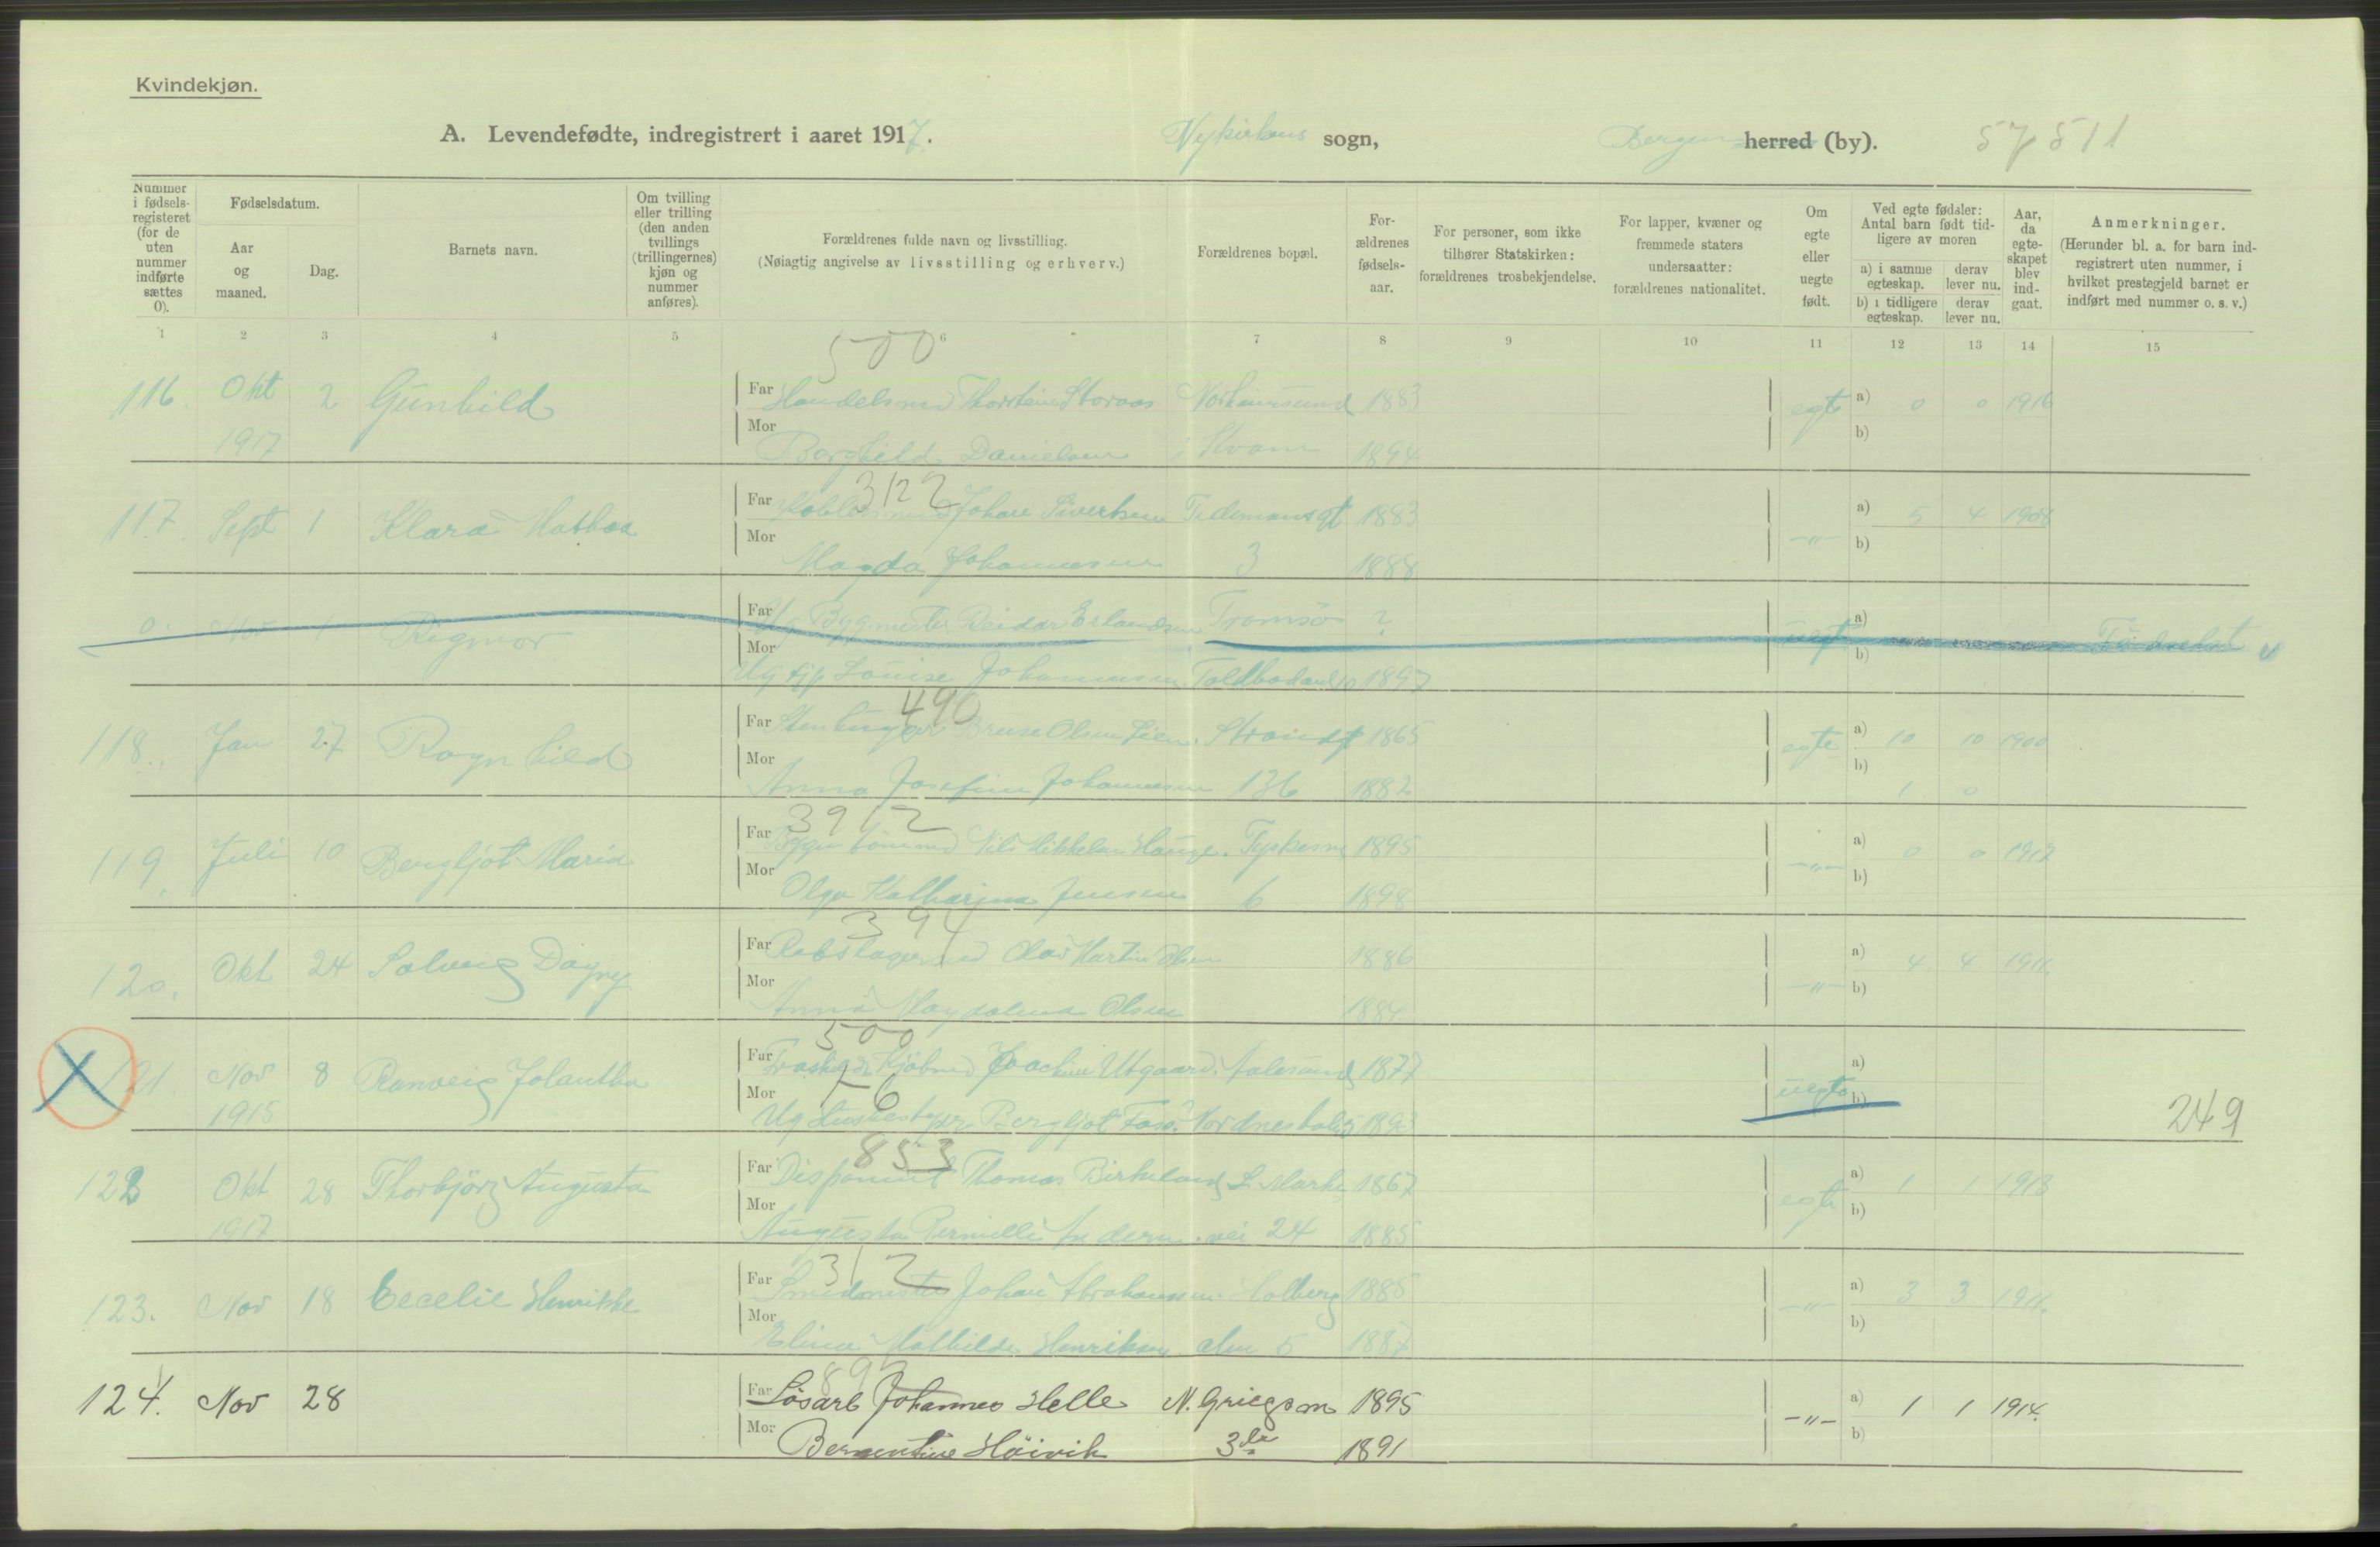 Kvindekjøn.
A. Levendefødte, indregistrert i aaret 1917. Nykirkens sogn, Bergen herred (by). 57511
Nummer i fødselsregisteret (for de uten nummer indførte sættes 0).
Fødselsdatum.
Aar og maaned.
Dag.
Barnets navn.
Om tvilling eller trilling (den anden tvillings (trillingernes) kjøn og nummer anføres).
Forældrenes fulde navn og livsstilling.
(Nøiagtig angivelse av livsstilling og erhverv.)
Forældrenes bopæl.
Forældrenes fødselsaar.
For personer, som ikke tilhører Statskirken: forældrenes trosbekjendelse.
For lapper, kvæner og fremmede staters undersaatter: forældrenes nationalitet.
Om egte eller uegte født.
Ved egte fødsler: Antal barn født tidligere av moren
a) i samme egteskap. derav lever nu.
b) i tidligere egteskap. derav lever nu.
Aar, da egteskapet blev indgaat.
Anmerkninger.
(Herunder bl. a. for barn indregistrert uten nummer, i hvilket prestegjeld barnet er indført med nummer o. s. v.)
1 2 3 4 5 6 7 8 9 10 11 12 13 14 15
500
116. Okt 2 Gunhild Far Handelsmd Thorstein Storaas Norheimsund 1883 egte a) 0 0 1916
1917 Mor Borghild Danielsen i Kvam 1894 b)
312
117. Sept 1 Klara Far Johan Sivertsen Tidemansgt 1883 a) 5 4 1908
Mor Magda Johannesen 3 1888 -"- b)
0. Nov 1 Rigmor Far Ug. Byggmester Reidar Erlandsen Tromsø ? uegt a)
Mor Ug tjp Louise Johannesen Toldbodalm 1897 b)
490
118. Jan 27 Ragnhild Far Olsen Lien Strandgt 1865 egte a) 10 10 1900
Mor Anna Josefine Johannesen 136 1882 b) 1 0
3912
119. Juli 10 Bergljot Maria Far Nils Mikkelsen Hauge. Tyskesm 1895 a) 0 0 1917
Mor Olga Katharina Jensen 6 1898 -"- b)
394
120. Okt 24 Solveig Dagny Far Rebslagersvd Olav Martin Olsen 1886 a) 4 4 1911
Mor Anna Magdalena Olsen 1884 -"- b)
500
121. Nov 8 Ranveig Jolantha Far Kjøbmd Joachim Utgaard. Aalesund 1877 uegte a)
1915 Mor Ug Bergljot Foss? 1893 b) 249
853
122 Okt 28 Thorbjørg Augusta Far Disponent Thomas Birkeland L. Marke 1867 egte a) 1 1 1913
1917 Mor Augusta Pernille Andersen. vei 24 1885 b)
312
123. Nov 18 Cecelie Henrikke Far Smedmester Johan Abrahamsen Holberg 1885 a) 3 3 1911.
Mor Eline Mathilde Henriksen alm 5 1887 -"- b)
89
124. Nov 28 Far Løsarb Johannes Helle N. Griegsm 1895 a) 1 1 1914.
Mor Bernentine Høivik 3de 1891 -"- b)